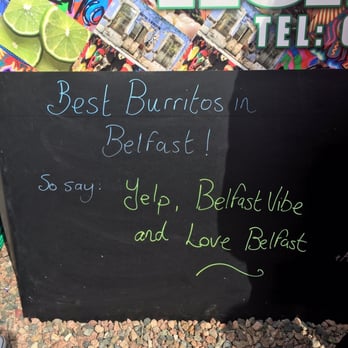 TEL:
Best Burritos in
Belfast!
So say: Yelp, Belfast Vibe
and Love Belfast